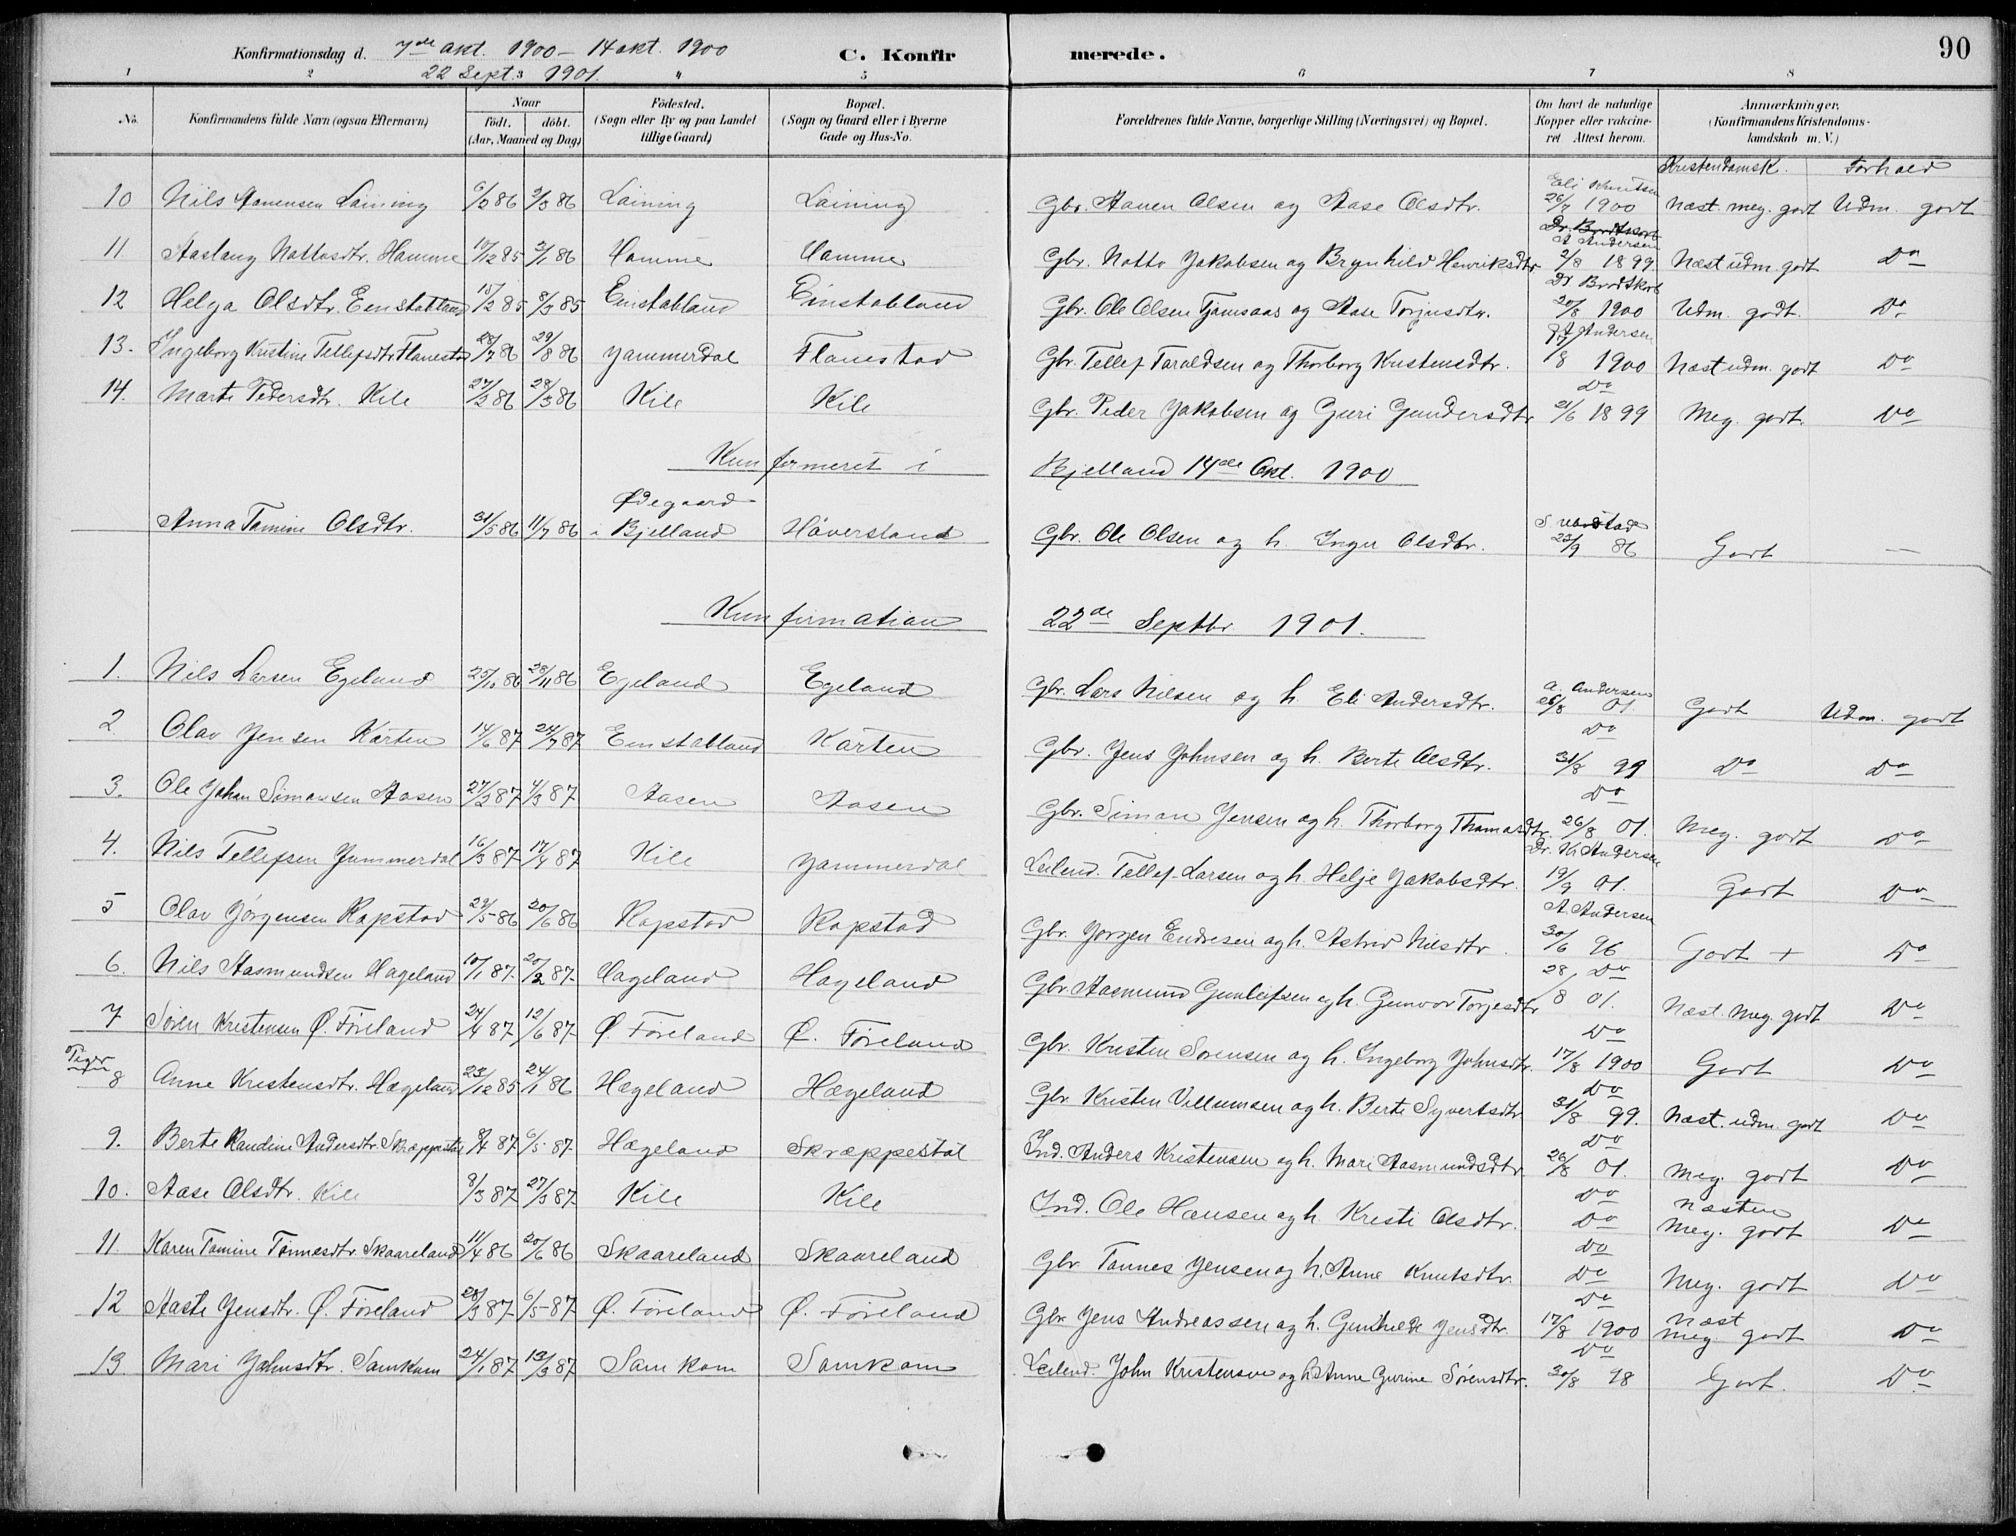 Konfirmationsdag d. 7de Okt. 1900 – 14 okt. 1900 C. Konfirmerede. 90
22 Sept. 1901.
1 2 3 4 5 6 7 8
No. Konfirmandens fulde Navn (ogsaa Efternavn) Naar født, døbt. (Aar, Maaned og Dag) Födested. (Sogn eller By og paa Landet tillige Gaard) Bopæl. (Sogn og Gaard eller i Byerne Gade og Hus-No. Forældrenes fulde Navne, borgerlige Stilling (Næringsvei) og Bopæl. Om havt de naturlige Kopper eller vakcineret Attest herom. Anmærkninger. (Konfirmandens Kristendomskundskab m. V.)
Kristendomsk. Forhold
10 Nils Aanensen Laining 6/3 86 86 Laining Laining Gbr. Aanen Olsen og Aase Olsdtr. 26/7 1900 Næst. meg. godt Udm. godt
11. Aaslaug Nottosdtr. Homme 19/12 85 3/1 86 Homme Homme Gbr. Notto Jakobsen og Brynhild Henriksdtr A Andersen 2/8 1899. Næst udm. godt Do
12 Helga Olsdtr. Einstabland 15/2 85 8/3 85 Einstabland Einstabland Gbr. Ole Olsen Tjomsaas og Aase Torjusdtr. Dr Brodtkorb 20/8 1900 Udm. godt. Do
13. Ingeborg Kristine Tellefsdtr Flanestad 28/7 86 29/8 86 Jammerdal Flanestad Gbr. Tellef Taraldsen og Thorborg Kristensdtr. Andersen /8 1900 Næst udm. godt Do
14. Marte Pedersdtr. Kile 27/2 86 28/3 86 Kile Kile Gbr. Peder Jakobsen og Guri Gundersdtr Do 21/6 1899 Meg. godt. Do
Kunfermeret i Bjelland 14de Okt. 1900
Anna Tomine Olsdtr. 31/5 86 11/7 86 Ødegaard i Bjelland Håversland Gbr. Ole Olsen og h. Inger Olsdtr. 23/9 86 Godt —
Kunfirmation 22de Septbr 1901.
1. Nils Larsen Egeland 25/10 86 28/11 86 Egeland Egeland Gbr. Lars Nilsen og h. Eli Andersdtr. A. Andersen 26/8 01 Godt Udm. godt
2 Olav Jensen Kårten 14/6 87 24/7 87 Einstabland Kårten Gbr. Jens Johnsen og h. Berte Olsdtr. Do 31/8 99 Do Do
3. Ole Johan Simonsen Aasen 27/2 87 4/3 87 Aasen Aasen Gbr. Simon Jensen og h. Thorborg Thomasdtr. Do 26/8 01. Meg. godt Do
4. Nils Tellefsen Jammerdal 16/3 87 17/4 87 Kile Jammerdal Leilend. Tellef Larsen og h. Helje Jakobsdtr. Dr. K. Andersen 19/9 01. Godt Do
5 Olav Jørgensen Ropstad 29/5 86 20/6 86 Ropstad Ropstad Gbr. Jørgen Endresen og h. Astrid Nilsdtr. A. Andersen 30/6 96 Godt + Do
6. Nils Aasmundsen Hageland 10/1 87 20/2 87 Hageland Hageland Gbr. Aasmund Gunleifsen og h. Gunvor Torjesdtr Do 28/8 01. Næst. meg. godt Do
7 Søren Kristensen Ø. Føreland 24/4 87 12/6 87 Ø. Føreland Ø. Føreland Gbr. Kristen Sørensen og h. Ingeborg Johnsdtr. Do 17/8 1900 Godt Do
Piger
8 Anne Kristensdtr. Hægeland 23/12 85 24/1 86 Hægeland Hægeland Gbr Kristen Villumsen og h. Berte Syvertsdtr Do 31/8 99. Næst. udm. godt Do
9. Berte Randine Andersdtr. Skræppestøl 8/4 87 6/5 87 Hægeland Skræppestøl Ind. Anders Kristensen og h. Mari Aasmundsdtr. Do 26/8 01. Meg. godt Do
10. Aase Olsdtr. Kile 8/3 87 27/3 87 Kile Kile Ind. Ole Hansen og h. Kristi Olsdtr. Do Do Næsten Meg. godt Do
11. Karen Tomine Tønnesdtr Skaareland 11/4 86 20/6 86 Skaareland Skaareland Gbr Tønnes Jensen og h. Anne Knutsdtr. Do Do Meg. godt Do
12 Aaste Jensdtr. Ø. Føreland 28/3 87 6/5 87 Ø. Føreland Ø. Føreland Gbr Jens Andreassen og h. Gunhilde Jensdtr. Do 17/8 1900 Næst meg godt Do
13. Mari Johnsdtr. Samkom 24/1 87 13/3 87 Samkom Samkom Leilend. John Kristensen og h. Anne Gurine Sørensdtr. Do 30/8 98 Godt. Do